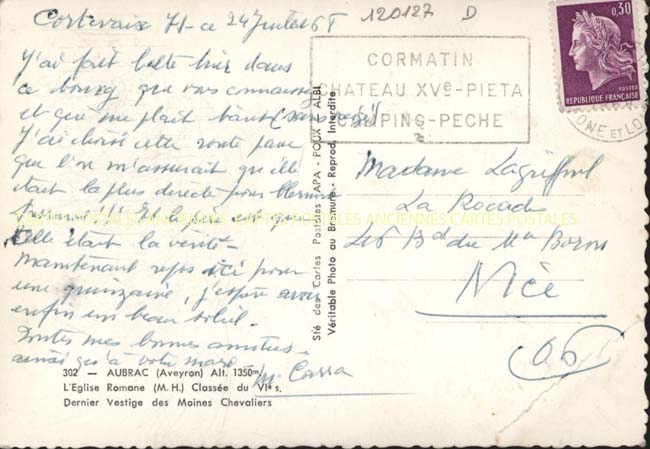 Cortevaix 71 - ce 24 Juillet 6
120127 D
0,30
POSTES
REPUBLIQUE FRANÇAISE
CORMATIN
CHATEAU XVe - PIETA
CAMPING - PECHE
ONE ET LO
J'ai fait halte hier dans
ce bourg que vous connaissez
et qui me plait
J'ai choisi cette route parce
que l'on m'assurait qu'elle
était la plus directe pour
que
elle était la vérité -
maintenant repos ici pour
une quinzaine, j'espère avoir
enfin un beau soleil.
Toutes mes bonnes amitiés -
ainsi qu'à votre mari.
M. Carra
302 — AUBRAC (Aveyron) Alt. 1350m
L'Eglise Romane (M.H.) Classée du VIe s.
Dernier Vestige des Moines Chevaliers
Sté des Cartes Postales APA - POUX - ALBI
Véritable Photo au Bromure - Reprod. Interdite
Madame
La
Bd du
Nice
(06)
CARTES POSTALES ANCIENNES CARTES POSTALES